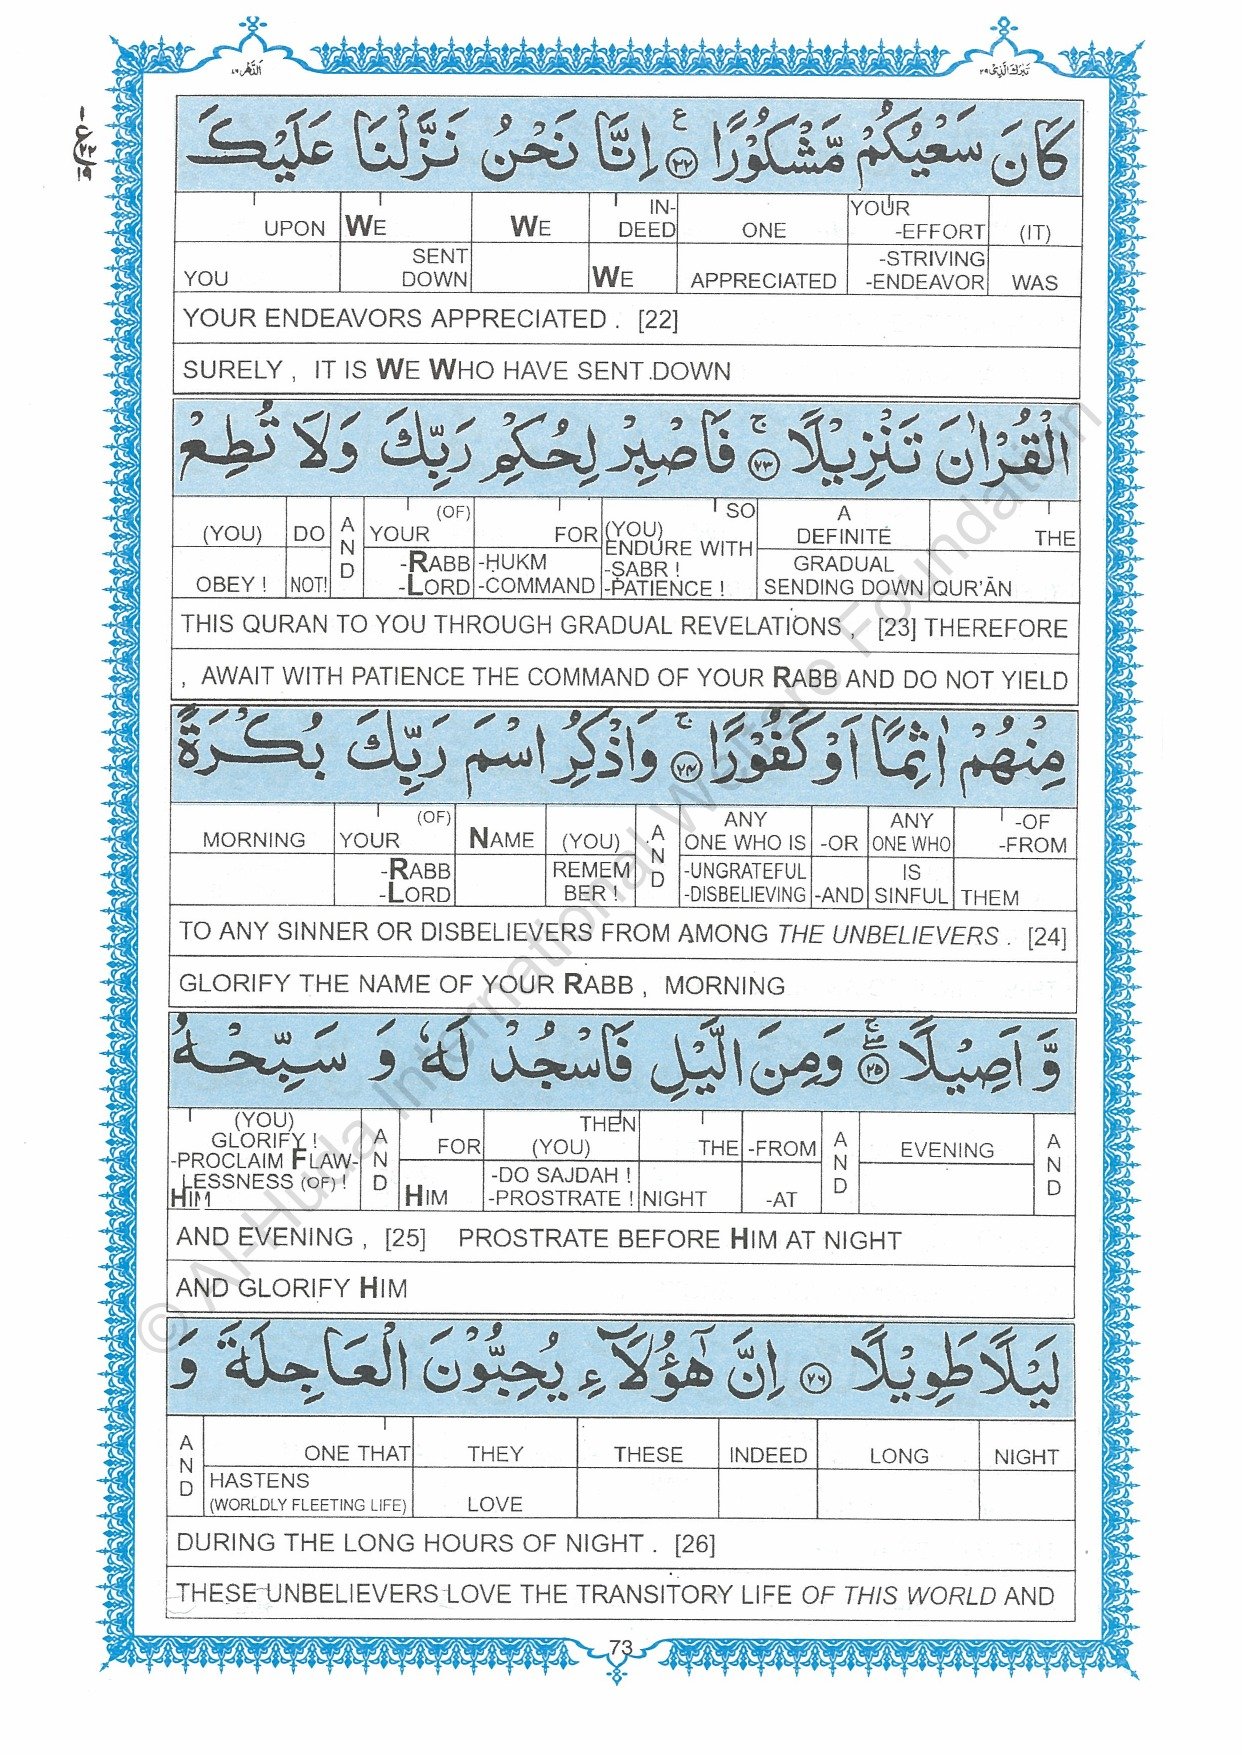 اَلدَّهْر ٧٦
تَبٰرَكَ الَّذِىْ ٢٩
كَانَ سَعْيُكُمْ مَّشْكُوْرًا ﴿٢٢﴾ اِنَّا نَحْنُ نَزَّلْنَا عَلَيْكَ
UPON WE WE IN- ONE YOUR (IT)
DEED -EFFORT
YOU SENT DOWN WE APPRECIATED -STRIVING -ENDEAVOR WAS
YOUR ENDEAVORS APPRECIATED . [22]
SURELY , IT IS WE WHO HAVE SENT DOWN
الْقُرْاٰنَ تَنْزِيْلًا ﴿٢٣﴾ فَاصْبِرْ لِحُكْمِ رَبِّكَ وَلَا تُطِعْ
(YOU) DO AND YOUR (OF) FOR SO (YOU) A DEFINITE THE
OBEY ! NOT! -RABB -LORD -ḤUKM -COMMAND ENDURE WITH -SABR ! -PATIENCE ! GRADUAL SENDING DOWN QUR'ĀN
THIS QURAN TO YOU THROUGH GRADUAL REVELATIONS , [23] THEREFORE
, AWAIT WITH PATIENCE THE COMMAND OF YOUR RABB AND DO NOT YIELD
مِنْهُمْ اٰثِمًا اَوْ كَفُوْرًا ﴿٢٤﴾ وَاذْكُرِ اسْمَ رَبِّكَ بُكْرَةً
MORNING YOUR (OF) NAME (YOU) AND ANY ONE WHO IS -OR ANY ONE WHO -OF -FROM
-RABB -LORD REMEM BER ! -UNGRATEFUL -DISBELIEVING -AND IS SINFUL THEM
TO ANY SINNER OR DISBELIEVERS FROM AMONG THE UNBELIEVERS . [24]
GLORIFY THE NAME OF YOUR RABB , MORNING
وَّ اَصِيْلًا ﴿٢٥﴾ وَمِنَ الَّيْلِ فَاسْجُدْ لَهٗ وَ سَبِّحْهُ
(YOU) GLORIFY ! AND FOR THEN (YOU) THE -FROM AND EVENING AND
-PROCLAIM FLAW- LESSNESS (OF) ! HIM HIM -DO SAJDAH ! -PROSTRATE ! NIGHT -AT
AND EVENING , [25] PROSTRATE BEFORE HIM AT NIGHT
AND GLORIFY HIM
لَيْلًا طَوِيْلًا ﴿٢٦﴾ اِنَّ هٰٓؤُلَآءِ يُحِبُّوْنَ الْعَاجِلَةَ وَ
AND ONE THAT THEY THESE INDEED LONG NIGHT
HASTENS (WORLDLY FLEETING LIFE) LOVE
DURING THE LONG HOURS OF NIGHT . [26]
THESE UNBELIEVERS LOVE THE TRANSITORY LIFE OF THIS WORLD AND
73
© Al-Huda International Welfare Foundation